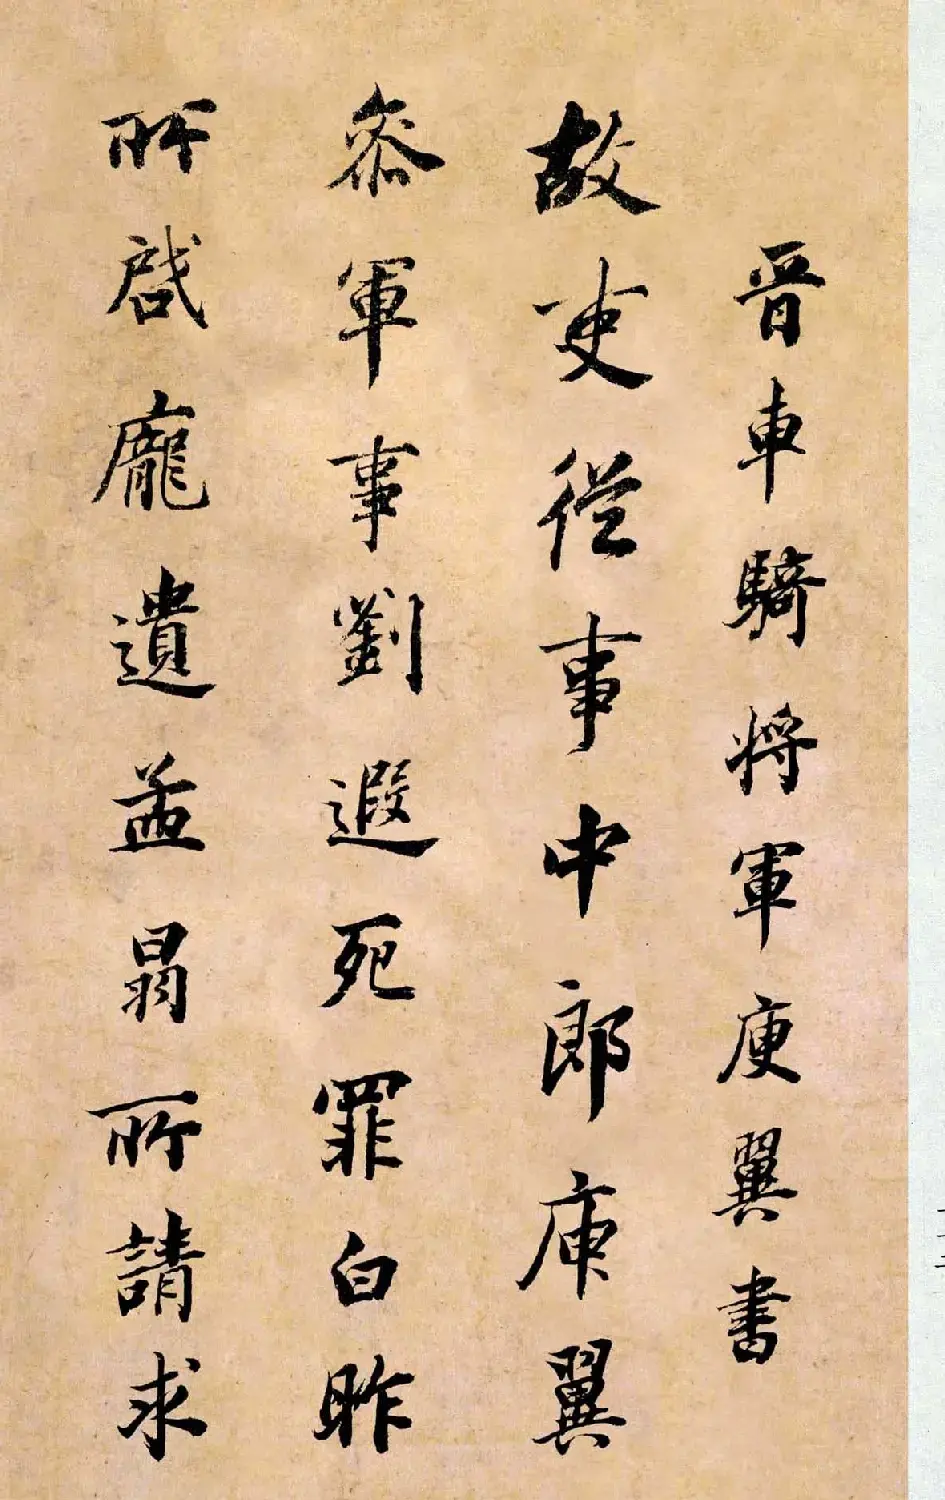 晋車騎将軍庾翼書
故吏從事中郎庾翼
叅軍事劉遐死罪白昨
所啟龐遺孟曷所請求